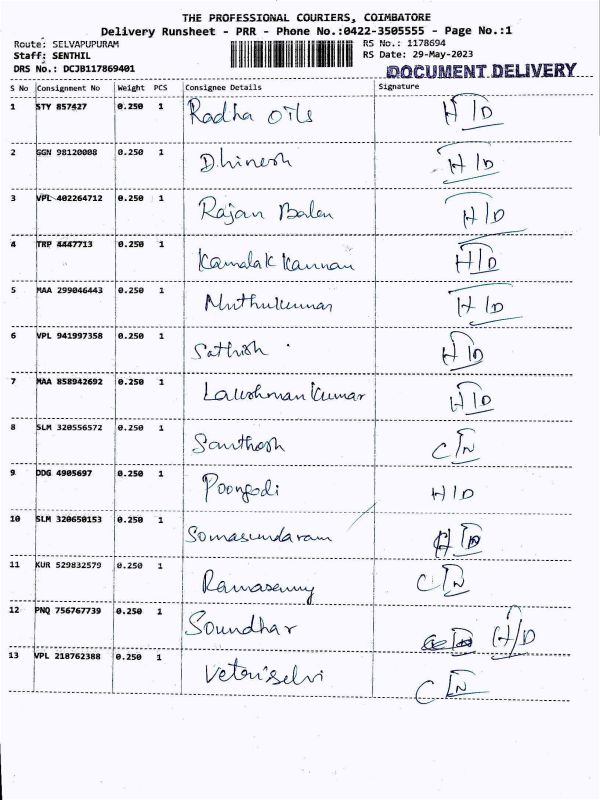 THE PROFESSIONAL COURIERS, COIMBATORE
Delivery Runsheet - PRR - Phone No.:0422-3505555 - Page No.:1
Route: SELVAPUPURAM RS No.: 1178694
Staff: SENTHIL RS Date: 29-May-2023
DRS No.: DCJB117869401 DOCUMENT DELIVERY
S No Consignment No Weight PCS Consignee Details Signature
1 STY 857427 0.250 1 Radha oils H/D
2 GGN 98120008 0.250 1 Dhinesh H/D
3 VPL 402264712 0.250 1 Rajan Balan H/D
4 TRP 4447713 0.250 1 Kamalak Kannan H/D
5 MAA 299046443 0.250 1 Muthukumar H/D
6 VPL 941997358 0.250 1 Sathish H/D
7 MAA 858942692 0.250 1 Lakshman Kumar H/D
8 SLM 320556572 0.250 1 Santhosh C/N
9 DDG 4905697 0.250 1 Poongodi H/D
10 SLM 320650153 0.250 1 Somasundaram H/D
11 KUR 529832579 0.250 1 Ramasamy C/N
12 PNQ 756767739 0.250 1 Soundhar H/D
13 VPL 218762388 0.250 1 Vetriselvi C/N